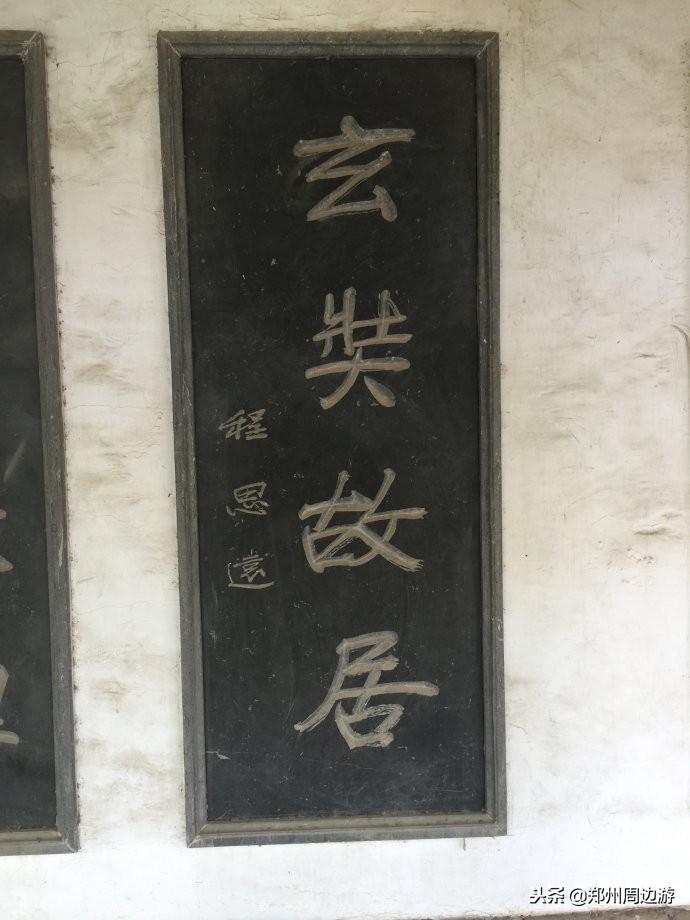 玄奘故居
程思遠
头条 @郑州周边游